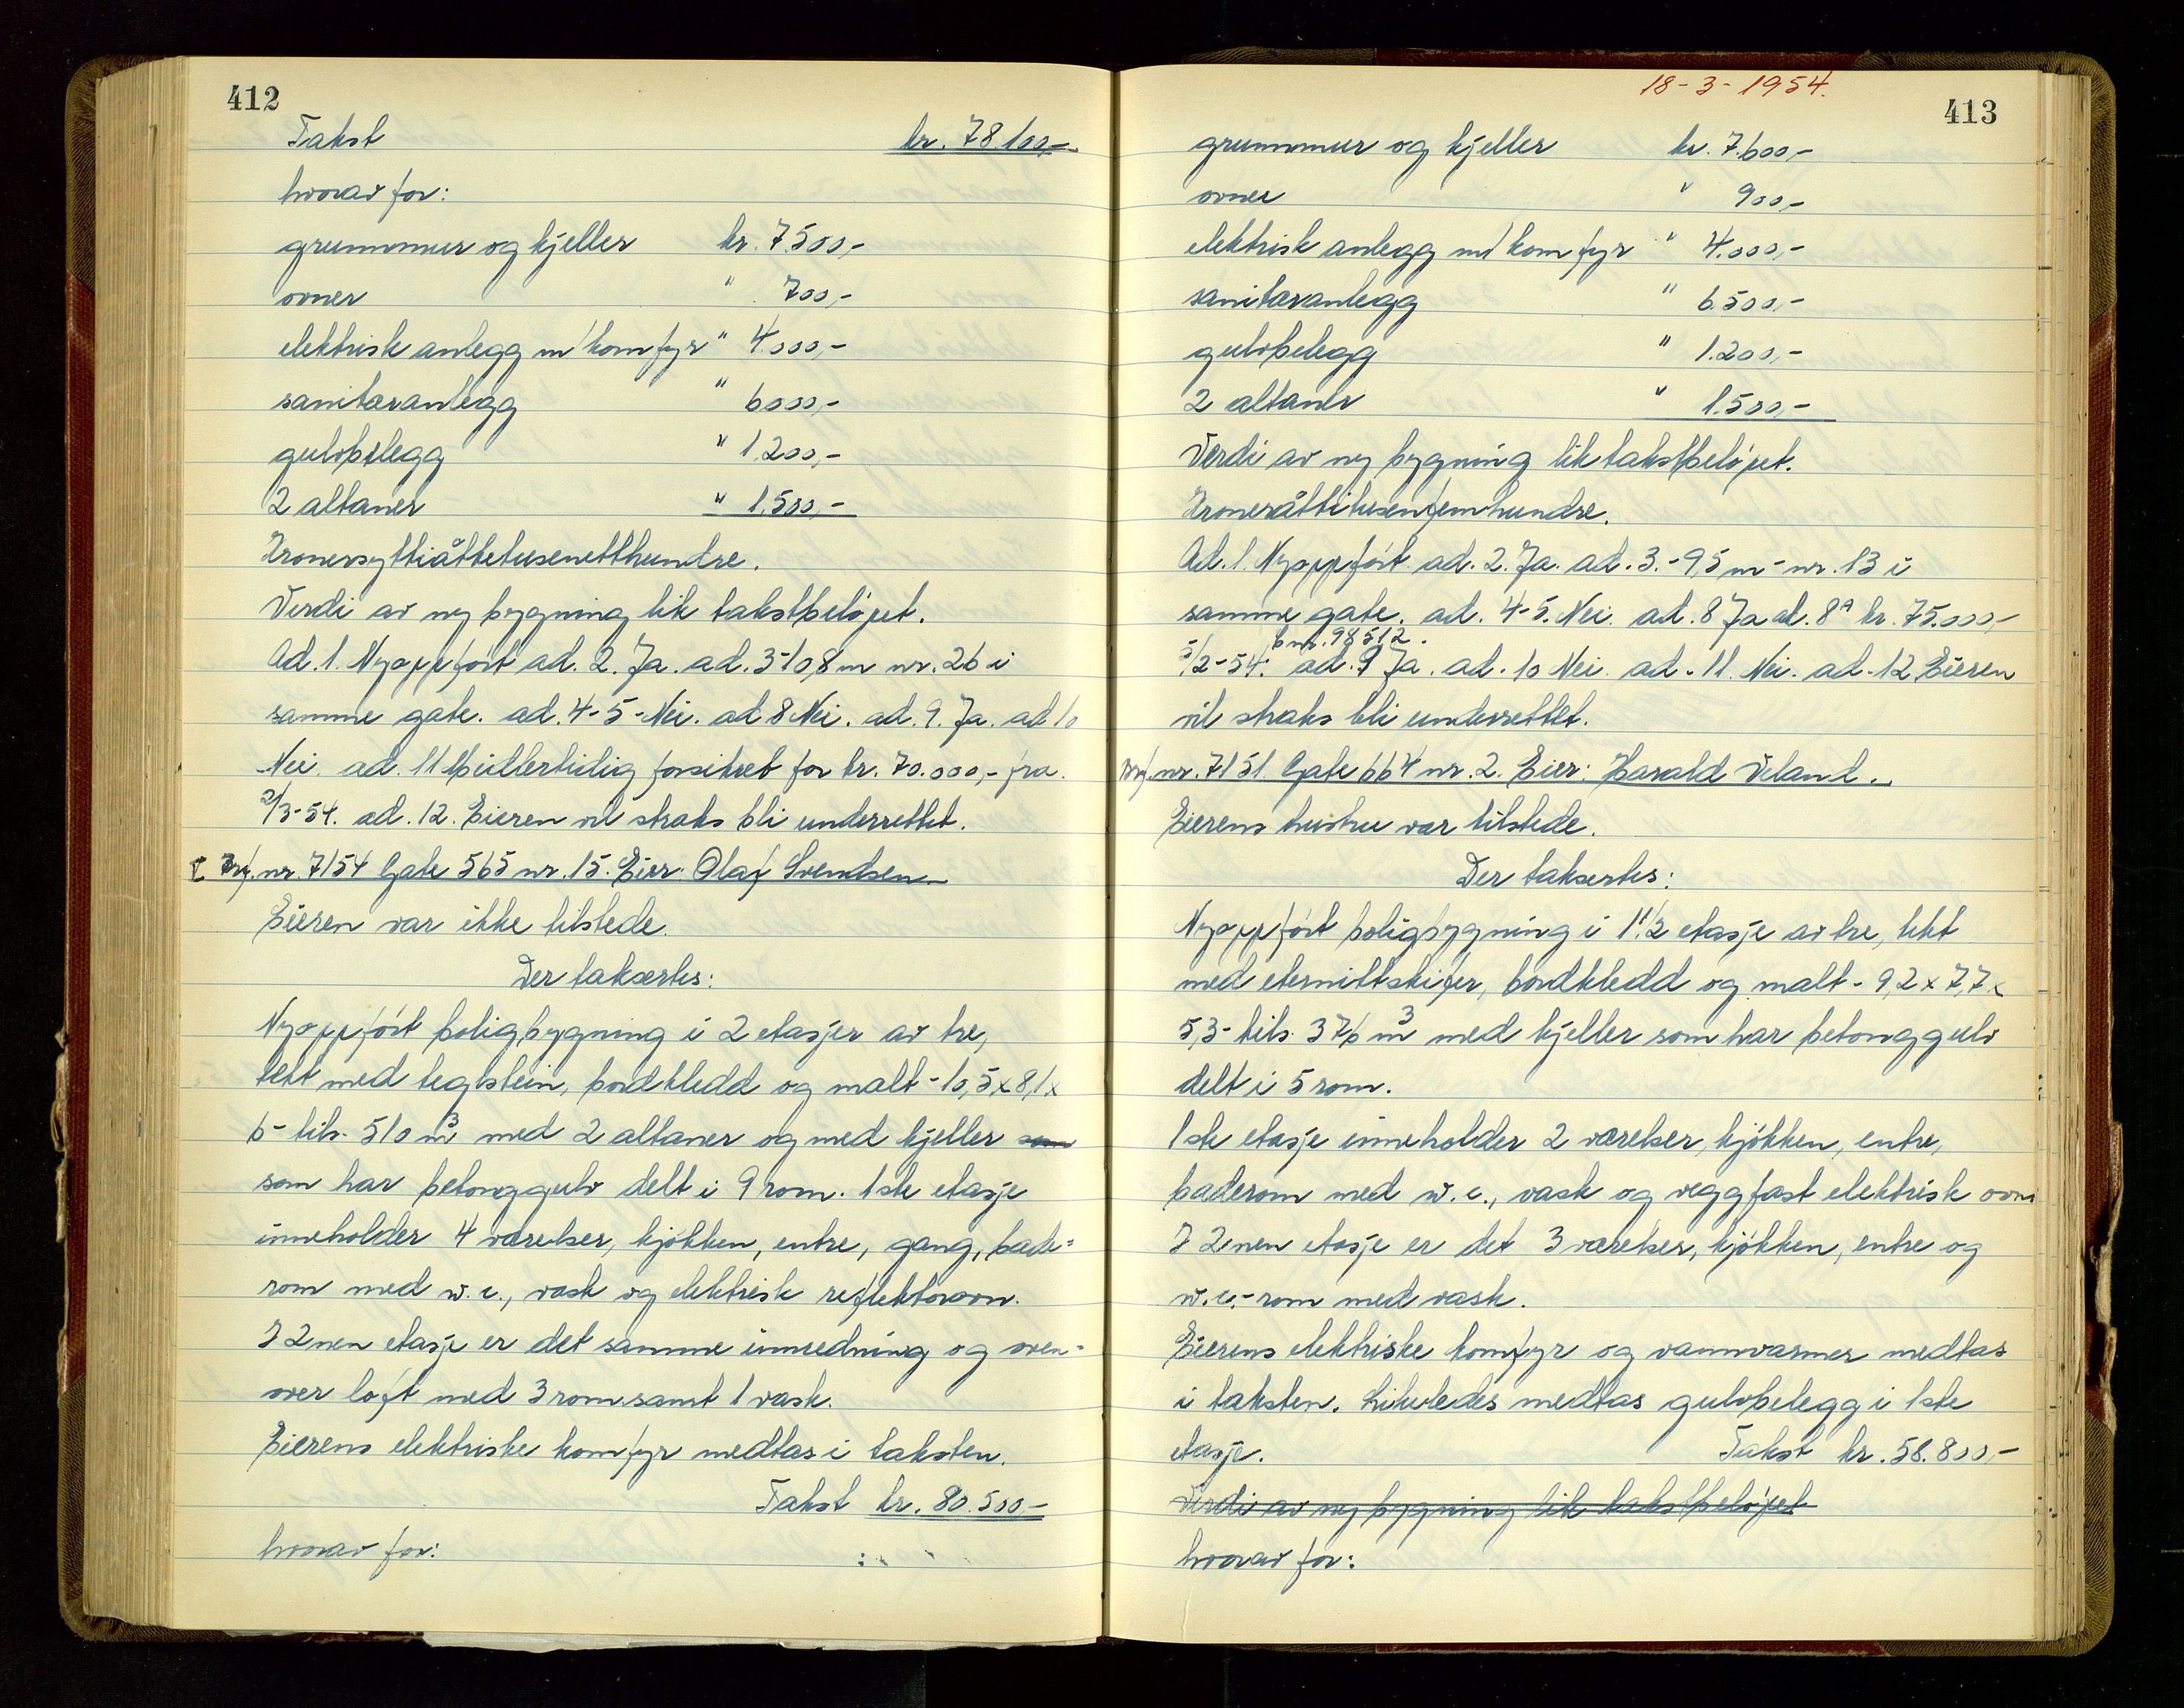 412
Takst kr. 78.100,-
hvorav for:
grunnmur og kjeller kr. 7.500,-
ovner " 700,-
elektrisk anlegg m/komfyr " 4.000,-
sanitæranlegg " 6000,-
gulvbelegg " 1.200,-
2 altaner " 1.500,-
Kronersyttiåttetusenetthundre.
Verdi av ny bygning lik takstbeløpet.
Ad. 1. Nyoppført ad. 2. Ja. ad. 3-10,8 m nr. 26 i
samme gate. ad. 4-5-Nei. ad 8 Nei. ad. 9. Ja. ad 10
Nei. ad. 11 Midlertidig forsikret for kr. 70.000,- fra
2/3-54. ad. 12. Eieren vil straks bli underrettet.
Brf. nr. 7154 Gate 565 nr. 15. Eier: Olaf Svendsen
Eieren var ikke tilstede.
Der takseres:
Nyoppført boligbygning i 2 etasjer av tre,
tekt med teglstein, bordkledd og malt - 10,5 x 8,1 x
6 - tils. 510 m³ med 2 altaner og med kjeller som
som har betonggulv delt i 9 rom. 1ste etasje
inneholder 4 værelser, kjøkken, entre, gang, bade=
rom med w.c., vask og elektrisk reflektorovn.
I 2nen etasje er det samme innredning og oven=
over loft med 3 rom samt 1 vask.
Eierens elektriske komfyr medtas i taksten.
Takst kr. 80.500-
hvorav for:
18-3-1954.
413
grunnmur og kjeller kr. 7.600,-
ovner " 900,-
elektrisk anlegg m/komfyr " 4.000,-
sanitæranlegg " 6.500,-
gulvbelegg " 1.200,-
2 altaner " 1.500,-
Verdi av ny bygning lik takstbeløpet.
Kroneråttitusenfemhundre.
Ad. 1. Nyoppført. ad. 2. Ja. ad. 3. - 9,5 m - nr. 13 i
samme gate. ad. 4-5. Nei. ad. 8 Ja ad. 8ª kr. 75.000,-
bnr. 98512.
5/2-54. ad. 9 Ja. ad. 10 Nei. ad. 11. Nei. ad. 12 Eieren
vil straks bli underrettet.
Brf. nr. 7151. Gate 664 nr. 2. Eier: Harald Veland.
Eierens hustru var tilstede.
Der takseres:
Nyoppført boligbygning i 1 1/2 etasje av tre, tekt
med eternittskifer, bordkledd og malt - 9,2 x 7,7 x
5,3 - tils. 376 m³ med kjeller som har betonggulv
delt i 5 rom.
1ste etasje inneholder 2 værelser, kjøkken, entre,
baderom med w.c., vask og veggfast elektrisk ovn.
I 2nen etasje er det 3 værelser, kjøkken, entre og
w.c.-rom med vask.
Eierens elektriske komfyr og vannvarmer medtas
i taksten. Likeledes medtas gulvbelegg i 1ste
etasje. Takst kr. 58.800,-
Verdi av ny bygning lik takstbeløpet
hvorav for: